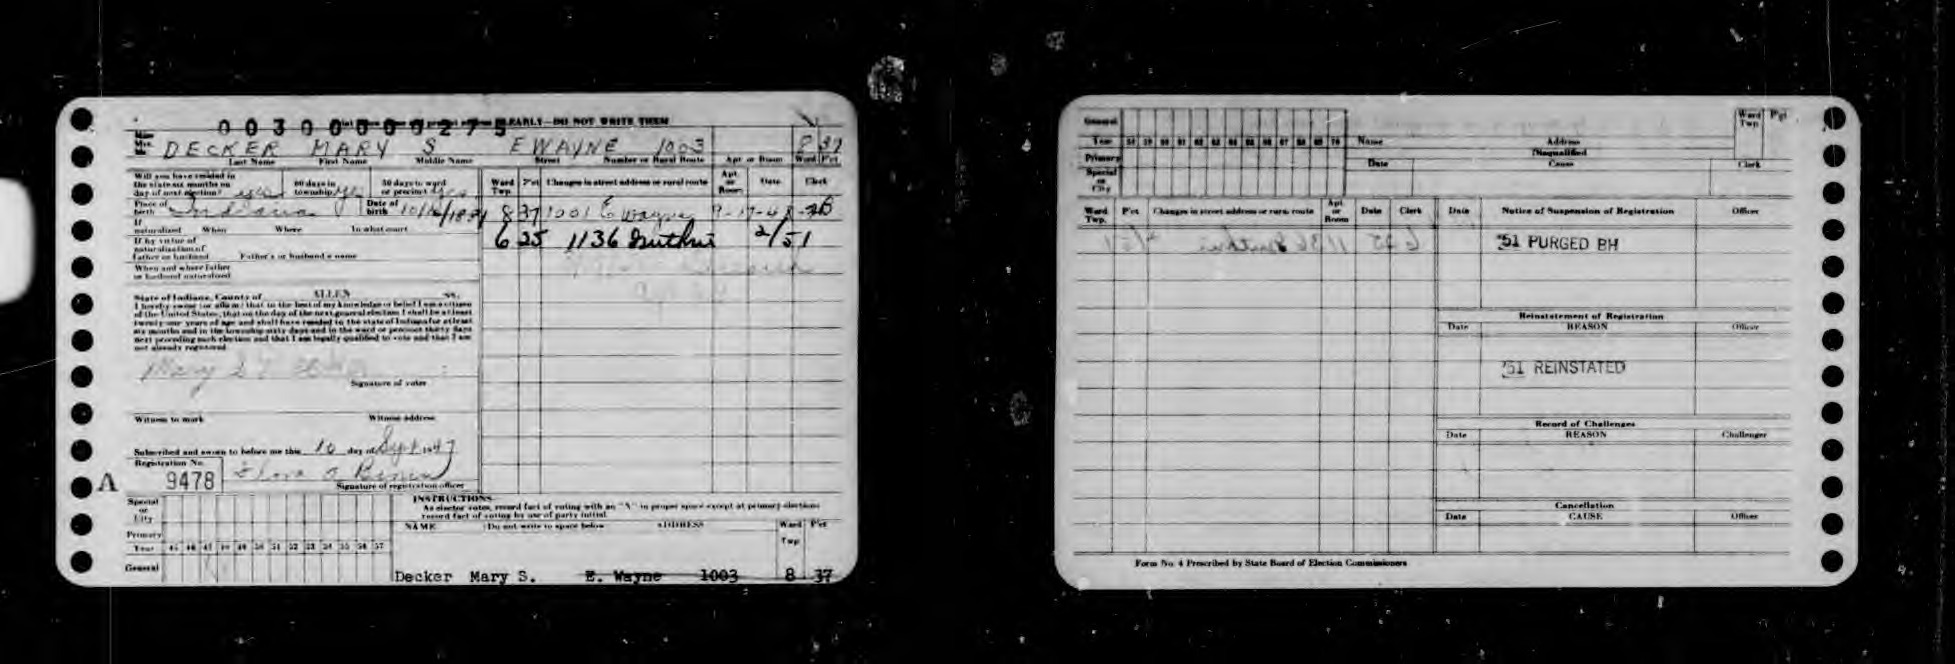 0030000275
Print plain CLEARLY—DO NOT WRITE THEM
Miss Mrs. Mr. DECKER MARY S E WAYNE 1003 8 37
Last Name First Name Middle Name Street Number or Rural Route Apt or Room Ward Pct
Will you have resided in the state six months on day of next election? yes 60 days in township yes 30 days in ward or precinct yes
Place of birth Indiana Date of birth
If naturalized When Where In what court
If by virtue of naturalization of father or husband Father's or husband's name
When and where father or husband naturalized
State of Indiana, County of ALLEN ss.
I hereby swear (or affirm) that to the best of my knowledge or belief I am a citizen
of the United States; that on the day of the next general election I shall be at least
twenty-one years of age and shall have resided in the state of Indiana for at least
six months and in the township sixty days and in the ward or precinct thirty days
next preceding such election and that I am legally qualified to vote and that I am
not already registered
Mary S
Signature of voter
Witness to mark Witness address
Subscribed and sworn to before me this 10 day of Sept 1947
Registration No.
9478
Signature of registration officer
A
Ward Twp. Pct Changes in street address or rural route Apt. or Room Date Clerk
8 37 1001 E Wayne 9-17-48
6 25 1136 Guthrie 2/51
Special or City
Primary
Year 45 46 47 48 49 50 51 52 53 54 55 56 57
General
INSTRUCTIONS
As elector votes, record fact of voting with an "X" in proper space except at primary elections
record fact of voting by use of party initial.
NAME (Do not write in space below ADDRESS Ward Twp Pct
Decker Mary S. E. Wayne 1003 8 37
General
Year 58 59 60 61 62 63 64 65 66 67 68 69 70
Primary
Special or City
Name Address Ward Twp. Pct
Disqualified
Date Cause Clerk
Ward Twp. Pct Changes in street address or rural route Apt. or Room Date Clerk
6 25 1136 Guthrie 2/51
Date Notice of Suspension of Registration Officer
'51 PURGED BH
Reinstatement of Registration
Date REASON Officer
'51 REINSTATED
Record of Challenges
Date REASON Challenger
Cancellation
Date CAUSE Officer
Form No. 4 Prescribed by State Board of Election Commissioners